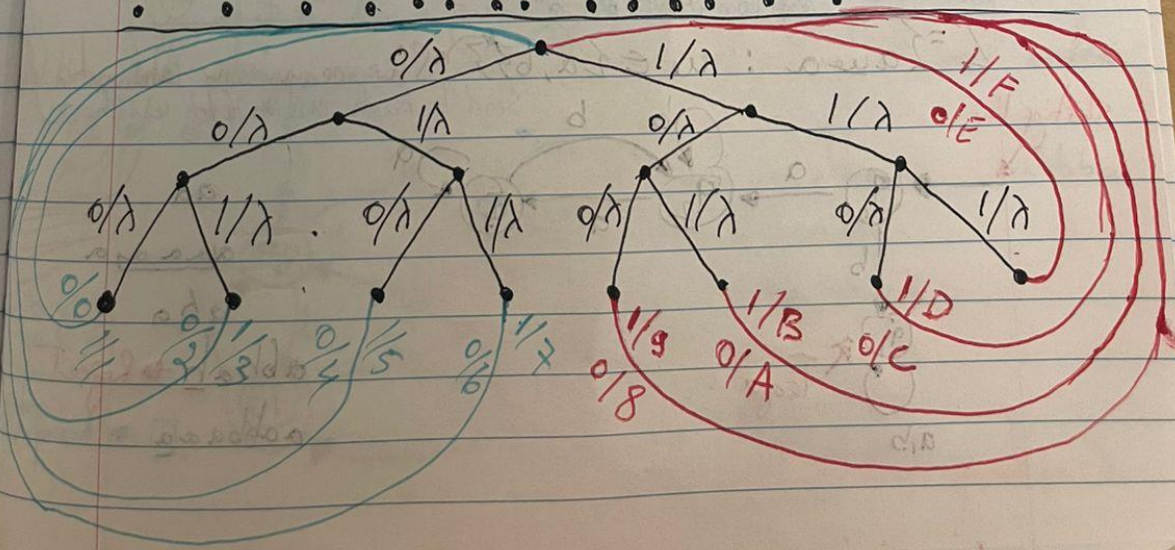 0/λ 1/λ
0/λ 1/λ 0/λ 1/λ
0/λ 1/λ 0/λ 1/λ 0/λ 1/λ 0/λ 1/λ
1/F
0/E
0/0
0/2 1/3
0/4 1/5
0/6 1/7
1/9
0/8
1/B
0/A
1/D
0/C